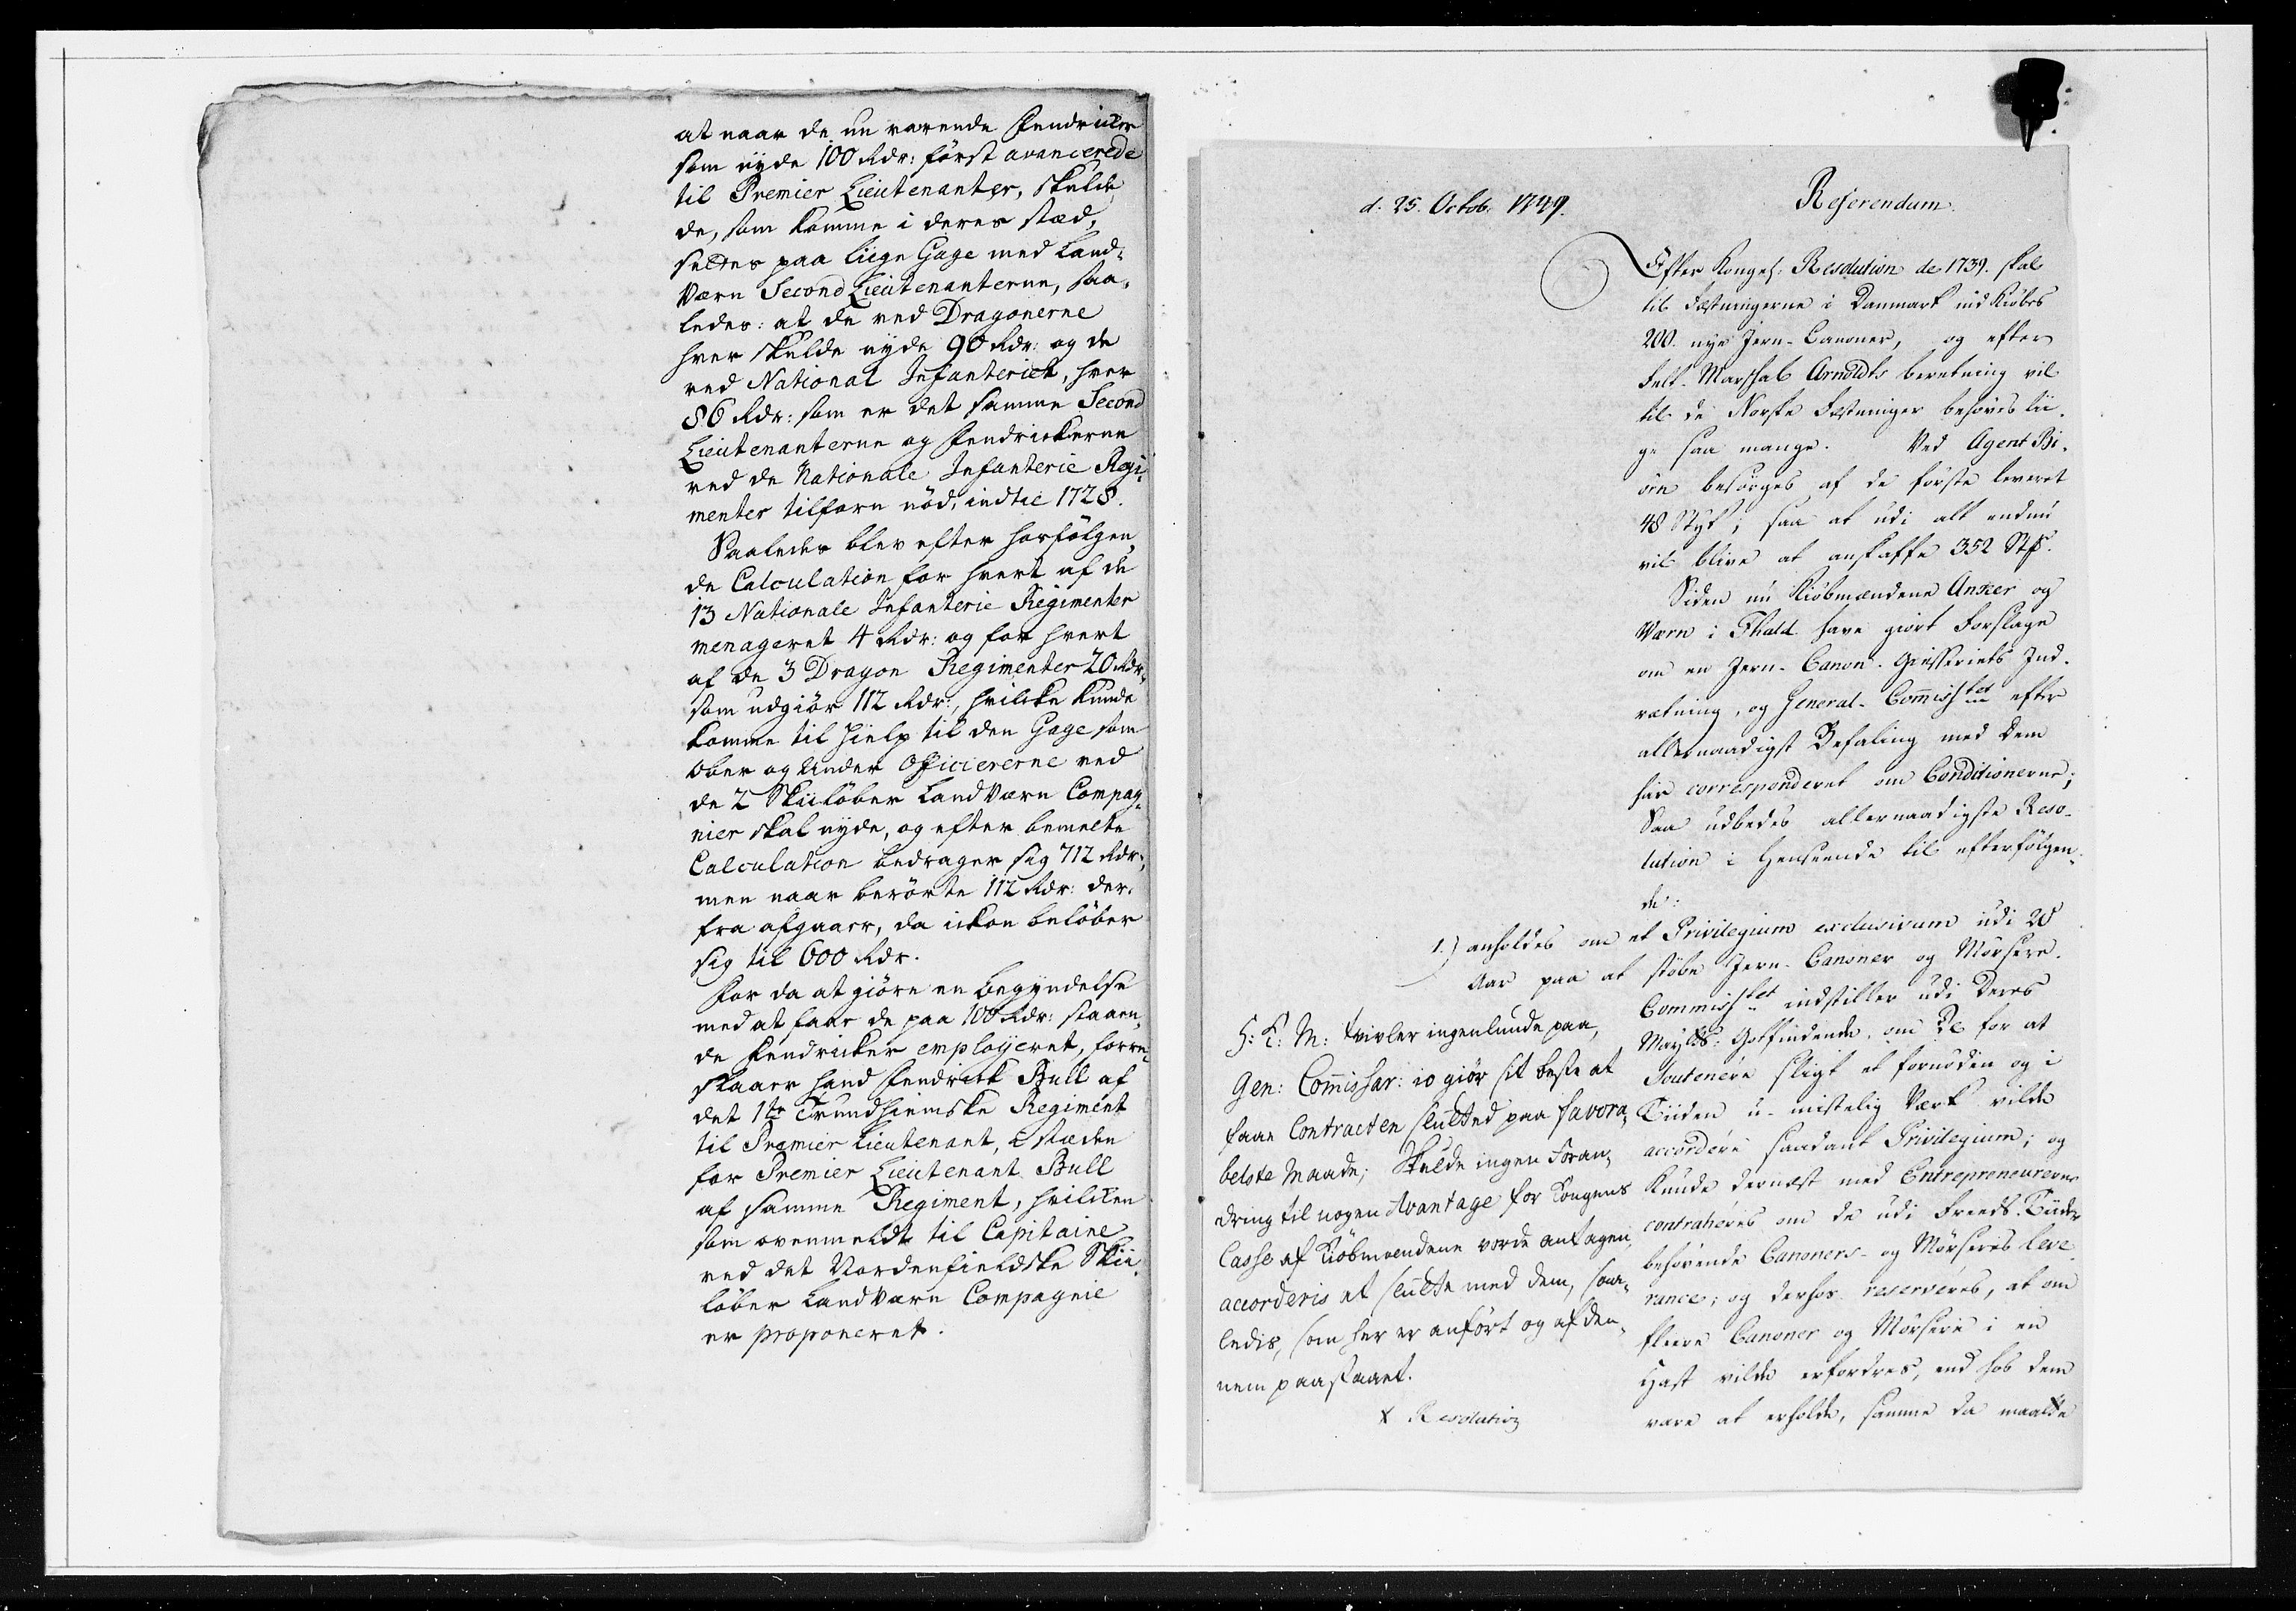 at naar de nu varende Fendricker
som nyde 100 Rdr: först avancerede
til Premier Lieutenanter, skulde
de, som komme i deres stæd,
settes paa liige Gage med Land-
Værn Second Lieutenanterne, saa-
ledes: at de ved Dragonerne
hver skulde nyde 90 Rdr: og de
ved National Infanteriet, hver
86 Rdr: som er det samme Second
Lieutenanterne og Fendrickerne
ved de Nationale Infanterie Regi-
menter tilforn nöd, indtil 1728.
Saaledes blev efter hosfölgen-
de Calculation for hvert af de
13 Nationale Infanterie Regimenter
menageret 4 Rdr: og for hvert
af de 3 Dragon Regimenter 20 Rdr:
som udgiör 112 Rdr:, hvilcke kunde
komme til Hielp til den Gage som
Ober og Under Officiererne ved
de 2 Skiilöber LandVærn Compag-
nier skal nyde, og efter bemelte
Calculation bedrager sig 712 Rdr:,
men naar berörte 112 Rdr: der-
fra afgaaer, da ickon belöber
sig til 600 Rdr.
For da at giöre en begyndelse
med at faae de paa 100 Rdr: staaen-
de Fendricker employeret, forre-
slaaer hand Fendrick Bull af
det 1te Trundhiemske Regiment
til Premier Lieutenant, i stæden
for Premier Lieutenant Bull
af samme Regiment, hvilcken
som ovenmeldt til Capitaine
ved det Nordenfieldske Skii-
löber LandVærn Compagnie
er proponeret.
d. 25. Octob. 1749.
Referendum.
Efter Kongel: Resolution de 1739. skal
til Fæstningerne i Danmark indkiöbes
200. nye Jern-Canoner, og efter
Felt-Marschal Arnoldts beretning vil
til de Norske Fæstninger behöves lii-
ge saa mange. Ved Agent Bi-
örn besörges af de förste leveret
48 Styk; saa at udi alt endnu
vil blive at anskaffe 352 Stk.
Siden nu Kiöbmændene Anker og
Wærn i Fhald have giort Forslage
om en Jern-Canon-Giesseriets Ind-
retning, og General-Commisstet efter
allernaadigst Befaling med dem
har correspondreret om Conditionerne;
Saa udbedes allernaadigste Reso-
lution i Henseende til efterfölgen-
de:
1.) anholdes om et Privilegium exclusivum udi 20
Aar paa at stöbe Jern-Canoner og Mörsere.
Commisstet indstiller udi Deres
Mayts: Gotfindende, om De for at
Soutenere sligt et fornöden og i
Tiiden u-mistelig Verk vilde
accordere saadant Privilegium; og
kunde dernæst med Entrepreneurerne
contraheres om de udi Freeds-Tiider
behövende Canoners- og Mörseres Leve-
rance; og derhos reserveres, at om
fleere Canoner og Mörsere i en
Hast vilde erfordres, end hos dem
være at erholde, samme da maatte
H: K: M: tvivler ingenlunde paa,
Gen: Commissar: io giör sit beste at
faae Contracten slutted paa favora-
belste Maade; Skulde ingen Foran-
dring til nogen Avantage for Kongens
Casse af Kiöbmændene vorde antagen,
accorderis et slutte med dem, saa-
ledis, som her er anfört og af den-
nem paastaaet.
x Resolution